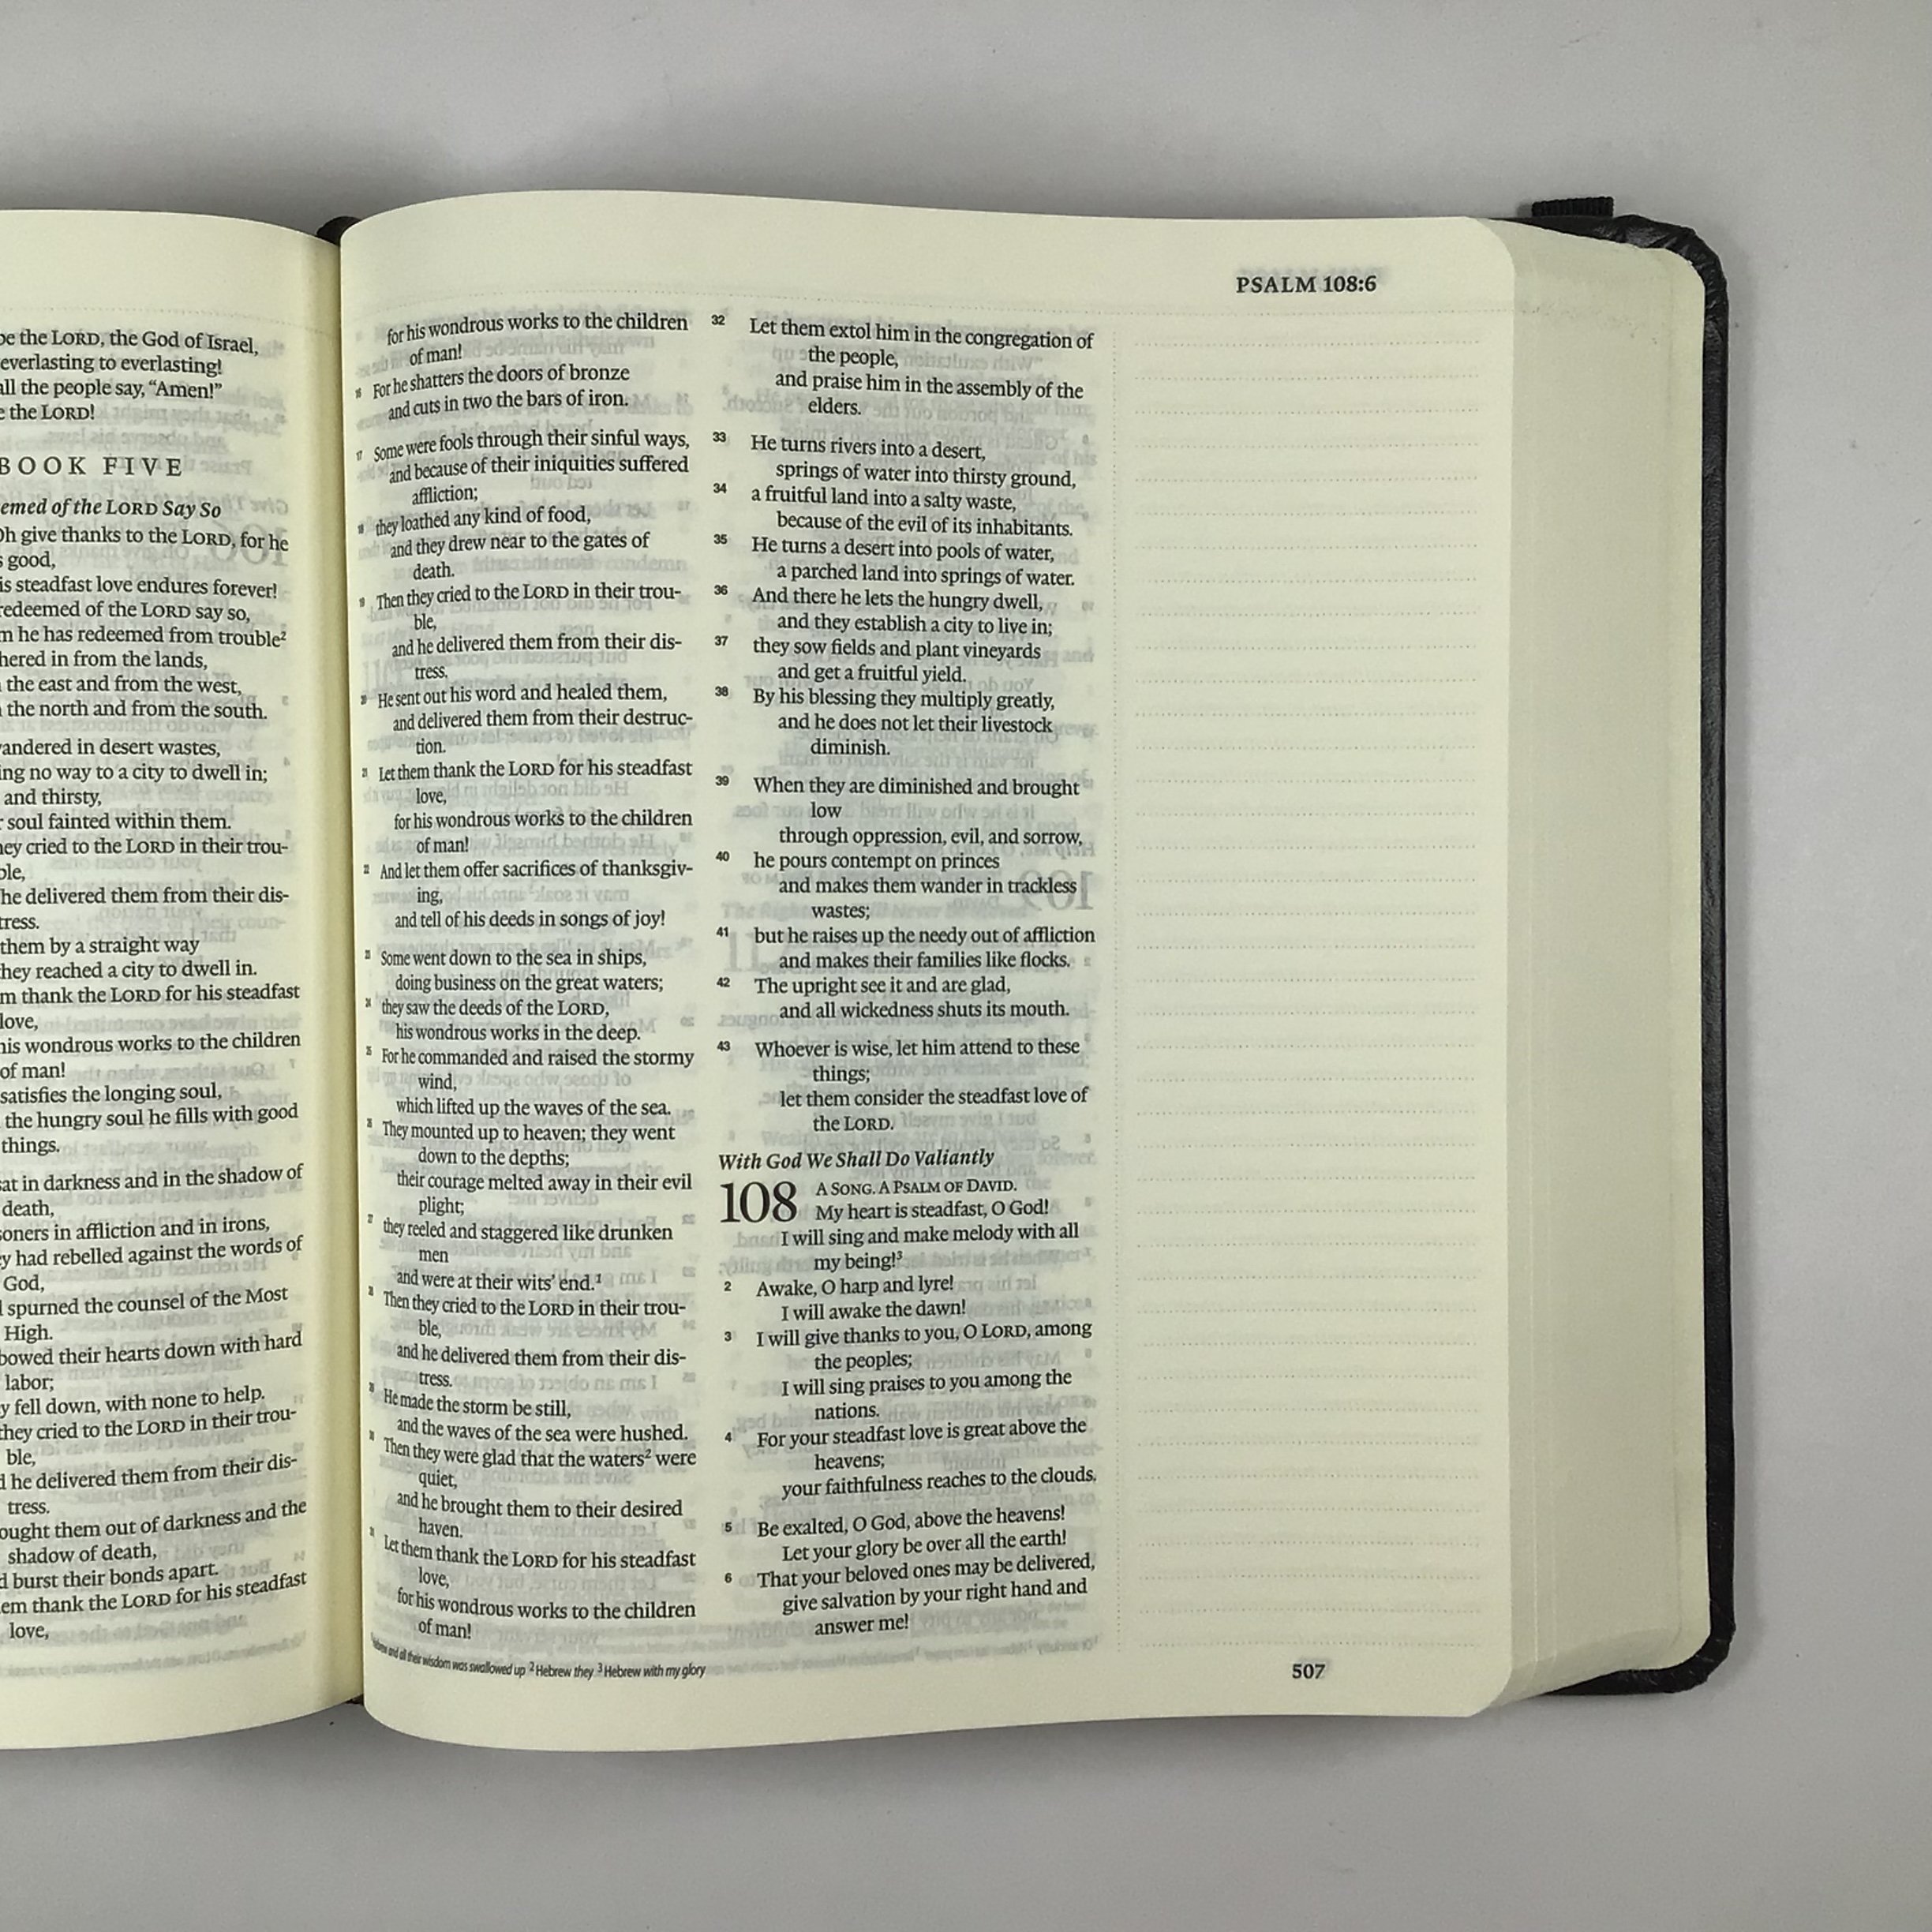 be the LORD, the God of Israel,
everlasting to everlasting!
all the people say, “Amen!”
the LORD!
BOOK FIVE
of the LORD Say So
Oh give thanks to the LORD, for he
good,
steadfast love endures forever!
redeemed of the LORD say so,
he has redeemed from trouble²
in from the lands,
the east and from the west,
the north and from the south.
in desert wastes,
no way to a city to dwell in;
and thirsty,
soul fainted within them.
cried to the LORD in their trou-
ble,
he delivered them from their dis-
tress.
them by a straight way
they reached a city to dwell in.
thank the LORD for his steadfast
love,
his wondrous works to the children
of man!
satisfies the longing soul,
the hungry soul he fills with good
things.
sat in darkness and in the shadow of
death,
in affliction and in irons,
had rebelled against the words of
God,
spurned the counsel of the Most
High.
bowed their hearts down with hard
labor;
fell down, with none to help.
they cried to the LORD in their trou-
ble,
he delivered them from their dis-
tress.
them out of darkness and the
shadow of death,
burst their bonds apart.
thank the LORD for his steadfast
love,
PSALM 108:6
for his wondrous works to the children
of man!
16 For he shatters the doors of bronze
and cuts in two the bars of iron.
17 Some were fools through their sinful ways,
and because of their iniquities suffered
affliction;
18 they loathed any kind of food,
and they drew near to the gates of
death.
19 Then they cried to the LORD in their trou-
ble,
and he delivered them from their dis-
tress.
20 He sent out his word and healed them,
and delivered them from their destruc-
tion.
21 Let them thank the LORD for his steadfast
love,
for his wondrous works to the children
of man!
22 And let them offer sacrifices of thanksgiv-
ing,
and tell of his deeds in songs of joy!
23 Some went down to the sea in ships,
doing business on the great waters;
24 they saw the deeds of the LORD,
his wondrous works in the deep.
25 For he commanded and raised the stormy
wind,
which lifted up the waves of the sea.
26 They mounted up to heaven; they went
down to the depths;
their courage melted away in their evil
plight;
27 they reeled and staggered like drunken
men
and were at their wits’ end.¹
28 Then they cried to the LORD in their trou-
ble,
and he delivered them from their dis-
tress.
29 He made the storm be still,
and the waves of the sea were hushed.
30 Then they were glad that the waters² were
quiet,
and he brought them to their desired
haven.
31 Let them thank the LORD for his steadfast
love,
for his wondrous works to the children
of man!
32 Let them extol him in the congregation of
the people,
and praise him in the assembly of the
elders.
33 He turns rivers into a desert,
springs of water into thirsty ground,
34 a fruitful land into a salty waste,
because of the evil of its inhabitants.
35 He turns a desert into pools of water,
a parched land into springs of water.
36 And there he lets the hungry dwell,
and they establish a city to live in;
37 they sow fields and plant vineyards
and get a fruitful yield.
38 By his blessing they multiply greatly,
and he does not let their livestock
diminish.
39 When they are diminished and brought
low
through oppression, evil, and sorrow,
40 he pours contempt on princes
and makes them wander in trackless
wastes;
41 but he raises up the needy out of affliction
and makes their families like flocks.
42 The upright see it and are glad,
and all wickedness shuts its mouth.
43 Whoever is wise, let him attend to these
things;
let them consider the steadfast love of
the LORD.
With God We Shall Do Valiantly
108 A SONG. A PSALM OF DAVID.
My heart is steadfast, O God!
I will sing and make melody with all
my being!³
2 Awake, O harp and lyre!
I will awake the dawn!
3 I will give thanks to you, O LORD, among
the peoples;
I will sing praises to you among the
nations.
4 For your steadfast love is great above the
heavens;
your faithfulness reaches to the clouds.
5 Be exalted, O God, above the heavens!
Let your glory be over all the earth!
6 That your beloved ones may be delivered,
give salvation by your right hand and
answer me!
and all their wisdom was swallowed up ² Hebrew they ³ Hebrew with my glory
507